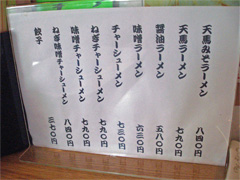 天馬みそラーメン 八四〇円
天馬ラーメン 七九〇円
醤油ラーメン 五八〇円
味噌ラーメン 六三〇円
チャーシューメン 七三〇円
ねぎチャーシューメン 七九〇円
味噌チャーシューメン 七九〇円
ねぎ味噌チャーシューメン 八四〇円
餃子 三七〇円